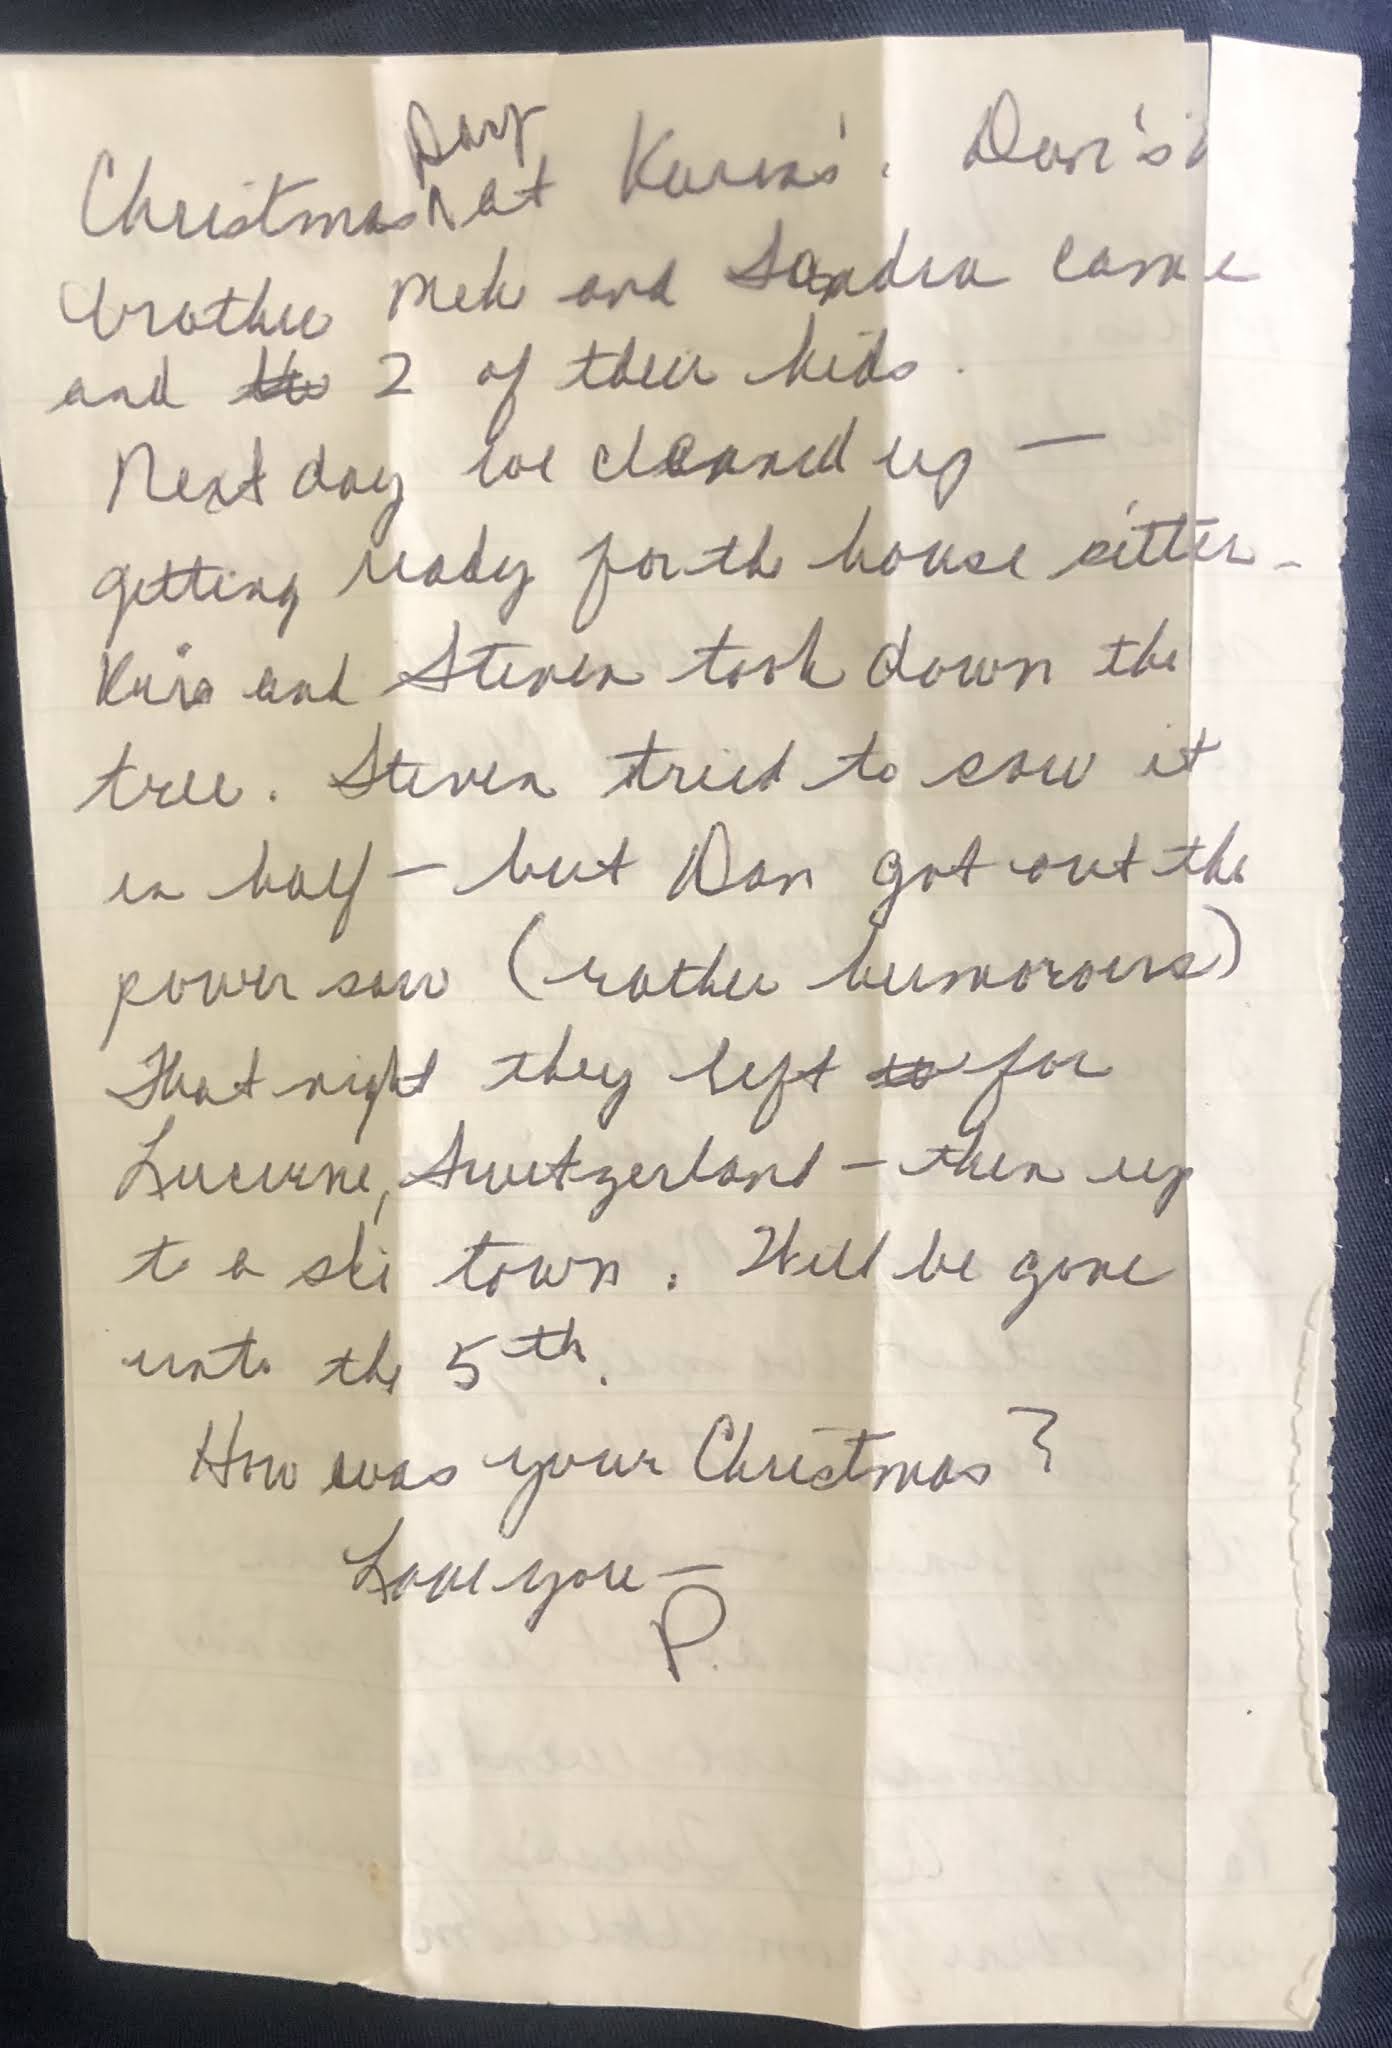 Christmas Day at Karens'. Dan's
brother Mel and Sandra came
and 2 of their kids.
Next day we cleaned up —
getting ready for th house sitter -
Kris and Steven took down the
tree. Steven tried to saw it
in half — but Dan got out the
power saw (rather humorous)
That night they left for
Lucerne, Switzerland — then up
to a ski town. Will be gone
unto the 5th.
How was your Christmas?
Love you —
P.